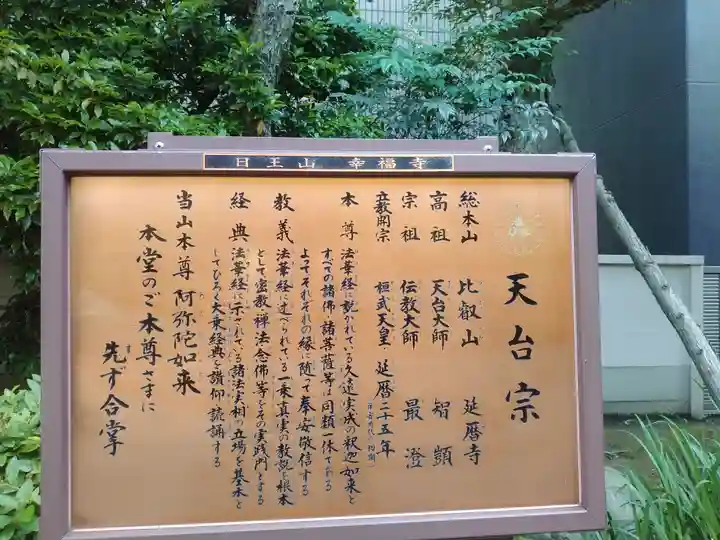 日王山　幸福寺
天台宗
総本山　比叡山　延暦寺
高祖　天台大師　智顗
宗祖　伝教大師　最澄
立教開宗　桓武天皇　延暦二十五年
本尊　法華経に説かれている久遠実成の釈迦如来と
すべての諸佛・諸菩薩等は同類一体である
よってそれぞれの縁に随って奉安敬信する
教義　法華経に述べられている一乗真実の教説を根本
として密教・禅法・念佛等をその実践門とする
経典　法華経に示されている諸法実相の立場を基本と
してひろく大乗経典を讃仰読誦する
当山本尊　阿弥陀如来
本堂のご本尊さまに
先ず合掌